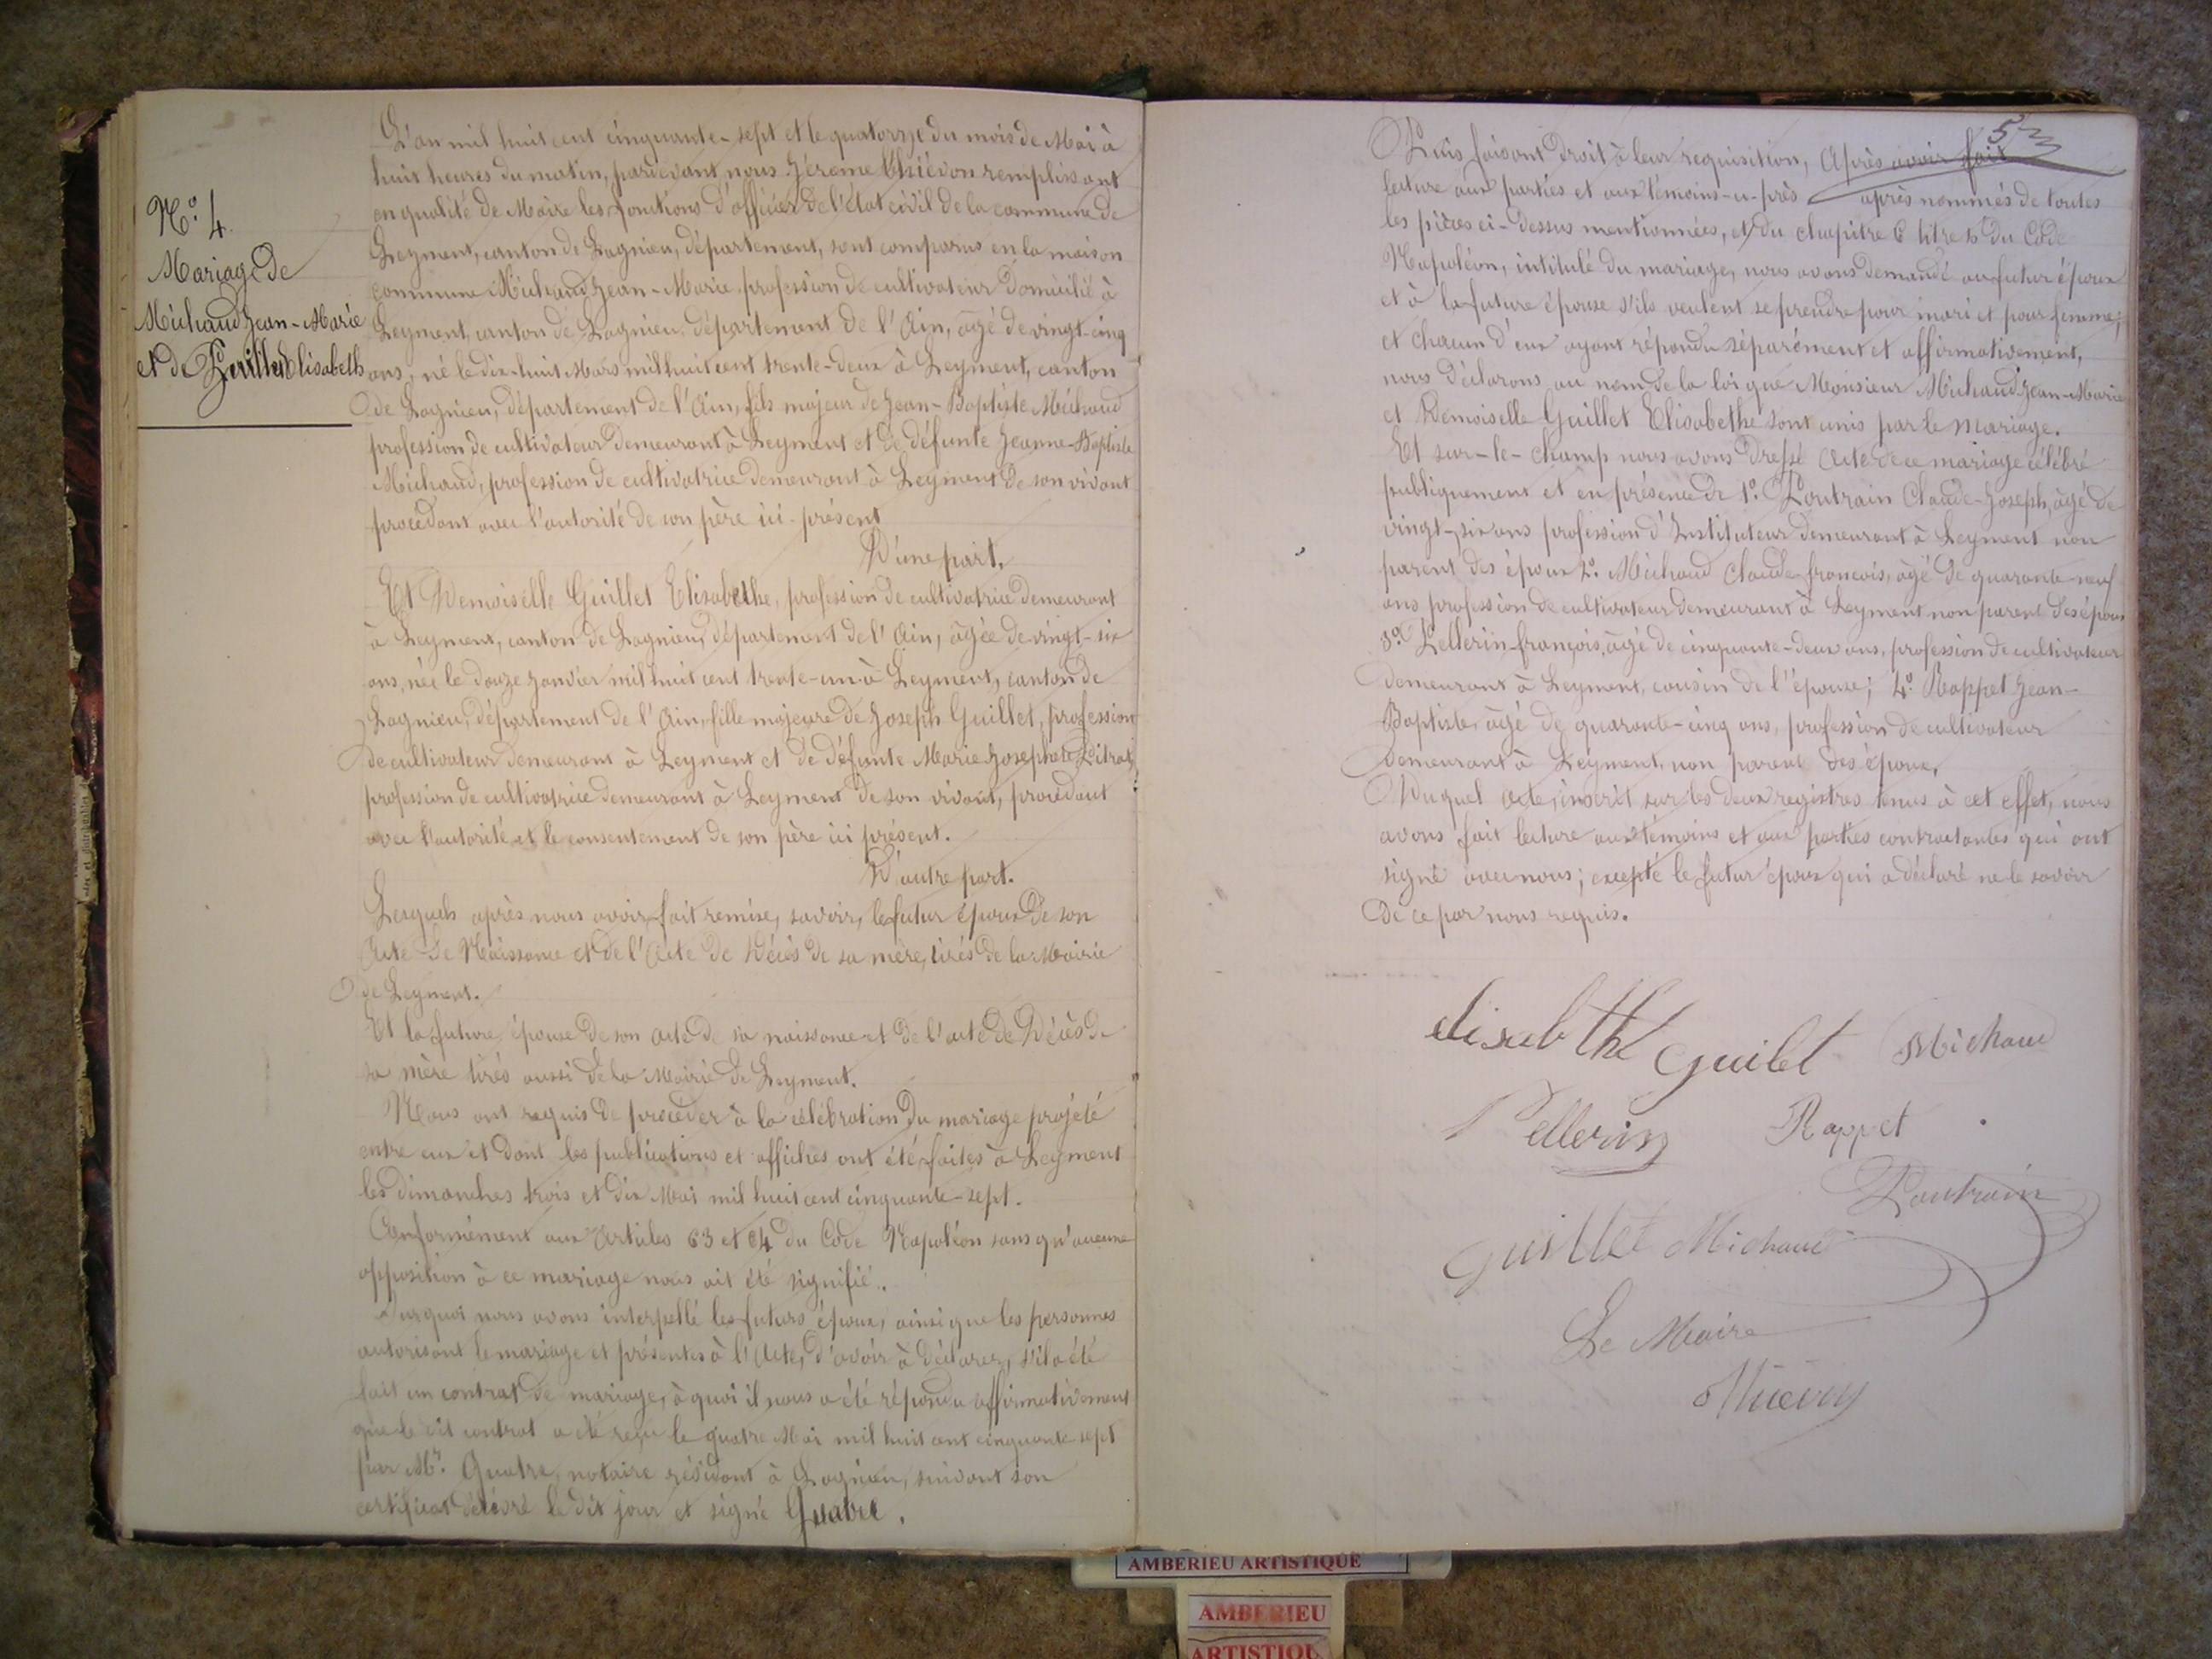 N.° 4.
Mariage de
Michaud Jean-Marie
et de Guillet Elisabeth
L'an mil huit cent cinquante-sept et le quatorze du mois de Mai à
huit heures du matin, pardevant nous Jérome Thiévon remplissant
en qualité de Maire les fonctions d'officier de l'état civil de la commune de
Leyment, canton de Lagnieu, département, sont comparus en la maison
commune Michaud Jean-Marie profession de cultivateur domicilié à
Leyment, canton de Lagnieu département de l'Ain, âgé de vingt-cinq
ans, né le dix-huit Mars mil huit cent trente-deux à Leyment, canton
de Lagnieu, département de l'Ain, fils majeur de Jean-Baptiste Michaud
profession de cultivateur demeurant à Leyment et de défunte Jeanne-Baptiste
Michaud, profession de cultivatrice demeurant à Leyment de son vivant
procédant avec l'autorité de son père ici présent
D'une part.
Et Demoiselle Guillet Elisabethe, profession de cultivatrice demeurant
à Leyment, canton de Lagnieu, département de l'Ain, âgée de vingt-six
ans, née le douze Janvier mil huit cent trente-un à Leyment, canton de
Lagnieu, département de l'Ain, fille majeure de Joseph Guillet, profession
de cultivateur demeurant à Leyment et de défunte Marie Josephte
profession de cultivatrice demeurant à Leyment de son vivant, procédant
avec l'autorité et le consentement de son père ici présent.
D'autre part.
Lesquels après nous avoir fait remise, savoir, le futur époux de son
Acte de Naissance et de l'Acte de Décès de sa mère, tirés de la Mairie
de Leyment.
Et la future épouse de son acte de sa naissance et de l'acte de Décès de
sa mère tirés aussi de la Mairie de Leyment.
Nous ont requis de procéder à la célébration du mariage projété
entre eux et dont les publications et affiches ont été faites à Leyment
les dimanches trois et dix Mai mil huit cent cinquante-sept.
Conformément aux Articles 63 et 64 du Code Napoléon sans qu'aucune
opposition à ce mariage nous ait été signifié.
Surquoi nous avons interpellé les futurs époux, ainsi que les personnes
autorisant le mariage et présentes à l'Acte, d'avoir à déclarer, s'il a été
fait un contrat de mariage, à quoi il nous a été répondu affirmativement
que le dit contrat a été reçu le quatre Mai mil huit cent cinquante-sept
par Mr. Quatre, notaire résidant à Lagnieu, suivant son
certificat délivré le dit jour et signé Quatre.
5
Puis faisant droit à leur requisition, Après avoir fait
lecture aux parties et aux témoins-a-près après nommés de toutes
les pièces ci-dessus mentionnées, et du chapitre 6 titre 5 du Code
Napoléon, intitulé du mariage, nous avons demandé au futur époux
et à la future épouse s'ils veulent se prendre pour mari et pour femme;
et chacun d'eux ayant répondu séparément et affirmativement,
nous déclarons au nom de la loi que Monsieur Michaud Jean-Marie
et Demoiselle Guillet Elisabethe sont unis par le mariage.
Et sur-le-champ nous avons dressé Acte de ce mariage célébré
publiquement et en présence de 1.° Loutrain Claude-Joseph, âgé de
vingt-six ans profession d'Instituteur demeurant à Leyment non
parent des époux 2.° Michaud Claude françois, âgé de quarante neuf
ans profession de cultivateur demeurant à Leyment non parent des époux
3.° Pellerin françois, âgé de cinquante-deux ans, profession de cultivateur
demeurant à Leyment, cousin de l'épouse; 4.° Rappet Jean-
Baptiste, âgé de quarante-cinq ans, profession de cultivateur
demeurant à Leyment, non parent des époux.
Duquel acte, inscrit sur les deux registres tenus à cet effet, nous
avons fait lecture aux témoins et aux parties contractantes qui ont
signé avec nous; excepté le futur époux qui a déclaré ne le savoir
de ce par nous requis.
elisabthe guilet Michaud
Pellerin Rappet
Loutrain
guillet Michaud
Le Maire
Thiévon
AMBERIEU ARTISTIQUE
AMBERIEU
ARTISTIQU